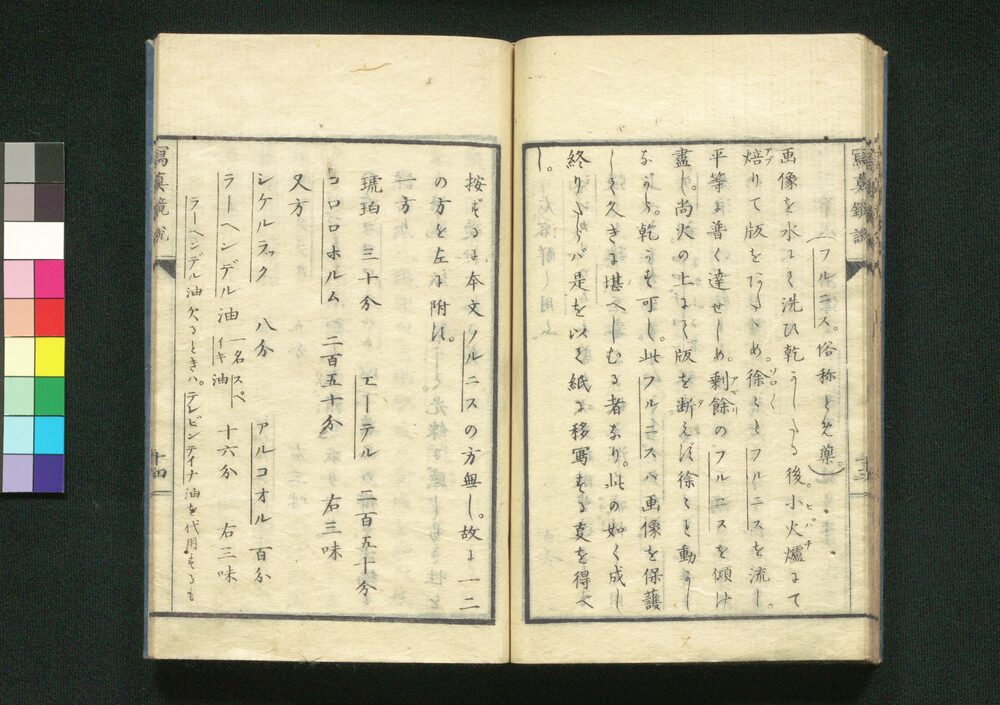 (フルニス。俗称とめ薬。)
画像を水にて洗ひ乾かしたる後。小火爐にて
焙りて版をあたゝめ。徐々とフルニスを流し。
平等に普く達せしめ。剰餘のフルニスを傾け
盡し。尚火の上にて版を断えば徐々と動かし
ながら。乾かす可し。此フルニスハ画像を保護
して久きに堪へしむる者なり。此の如く成し
終りたらバ是を以て紙に移写する事を得べ
し。
寫真鏡説
十三
按ずるに本文フルニスの方無し。故に一二
の方を左に附す。
一方
琥珀 三十分 エーテル 二百五十分
コロロホルム 二百五十分 右三味
又方
シケルラック 八分 アルコオル 百分
ラーヘンデル油 一名スペイキ油 十六分 右三味
ラーヘンデル油欠るときハ。テレビンテイナ油を代用するも
寫真鏡説
十四